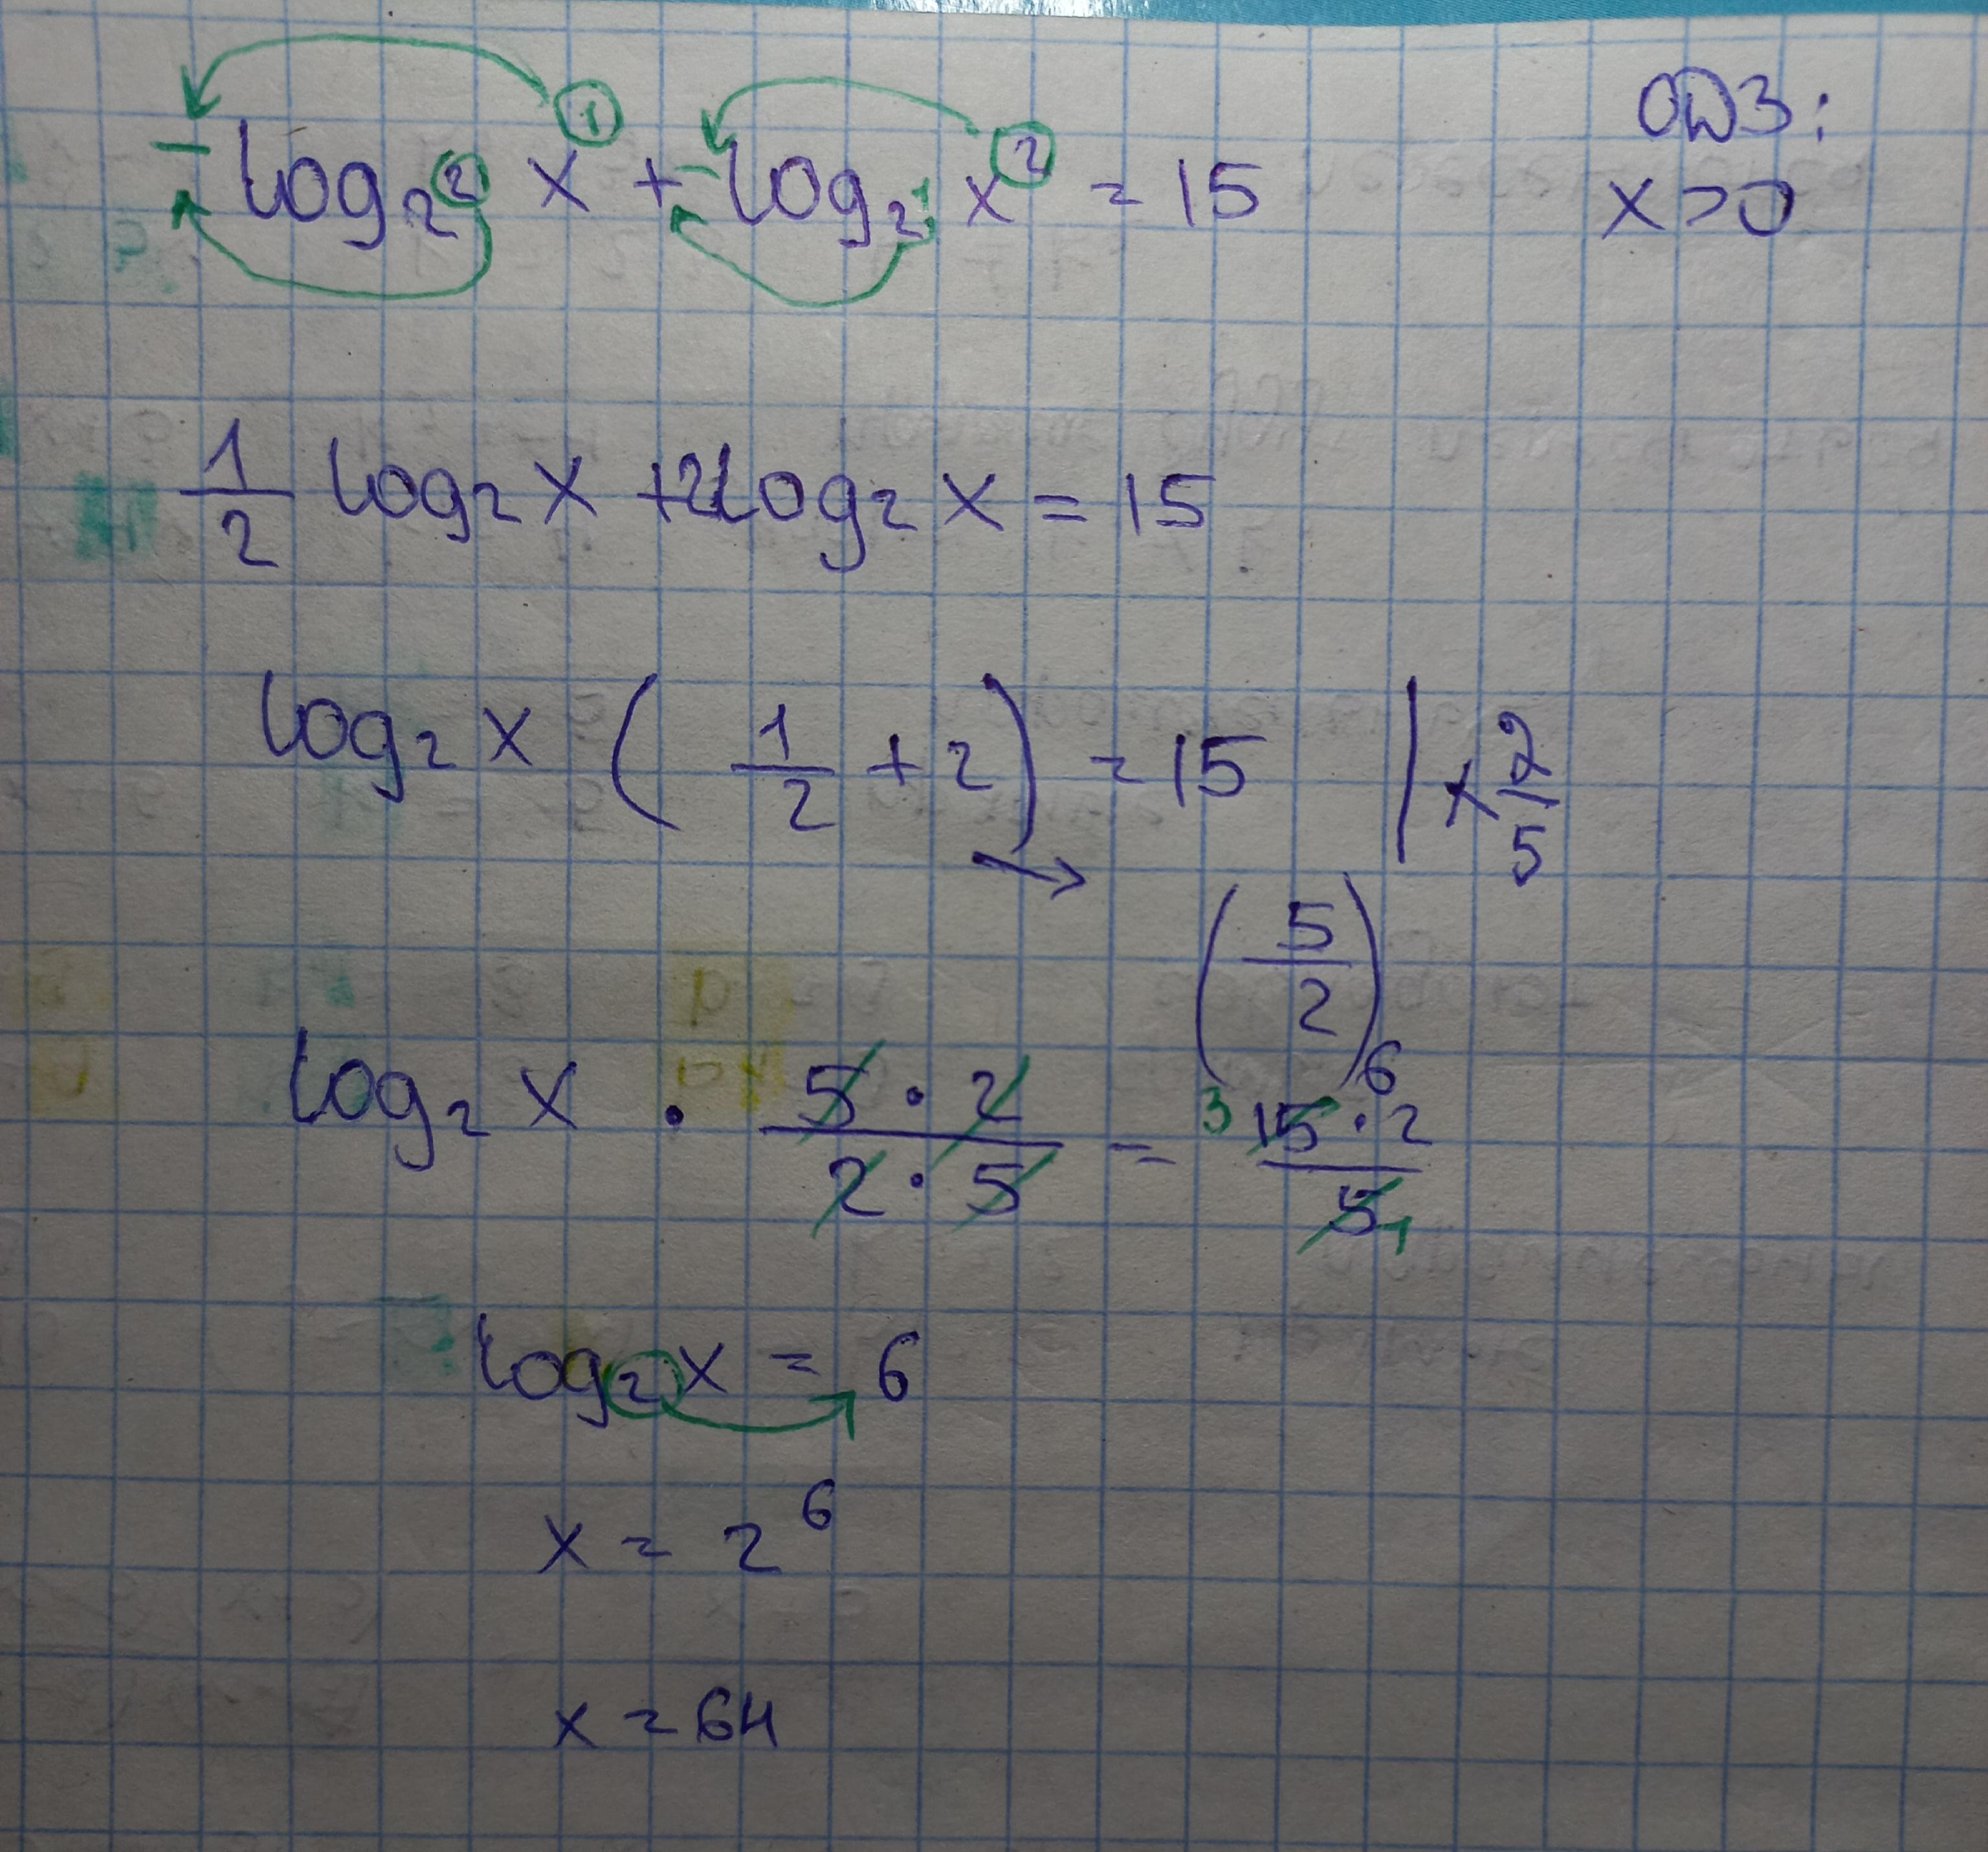 log₂② x① + log₂¹ x② = 15 ОДЗ:
x > 0
1/2 log₂ x + 2 log₂ x = 15
log₂ x ( 1/2 + 2 ) = 15 | × 2/5
→ (5/2)
log₂ x · 5 · 2 / 2 · 5 = 3 15 · 2 6 / 5 1
log₂ x = 6
x = 2⁶
x = 64